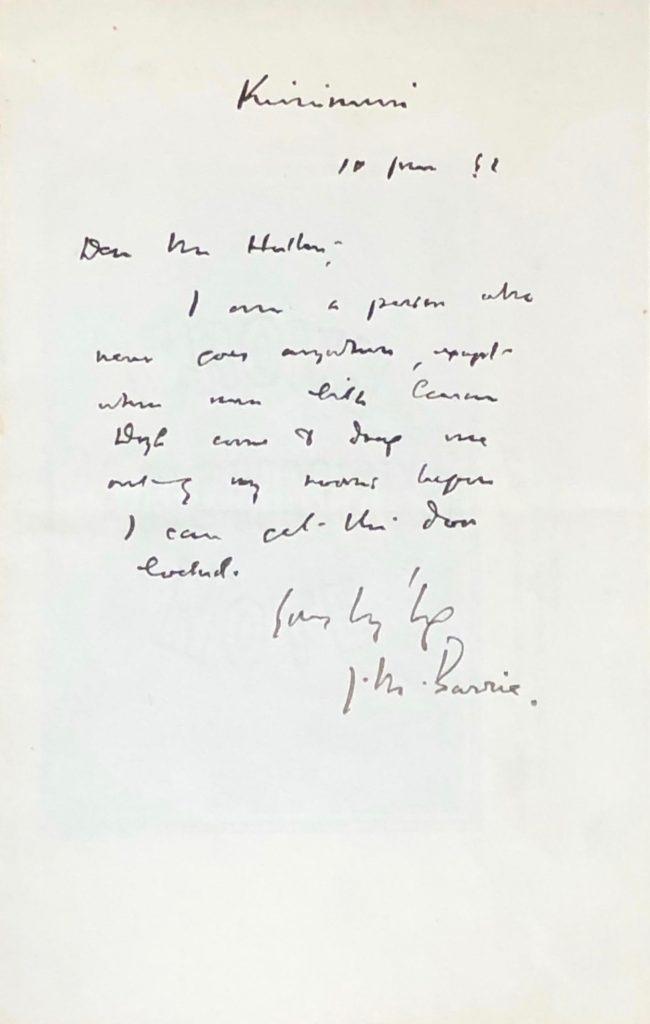 Kirriemuir
10 June 92
Dear Mr
I am a person who
never goes anywhere, except
when men like Conan
Doyle come & drag me
out of my rooms before
I can get the door
locked.
Yours truly
J. M. Barrie.